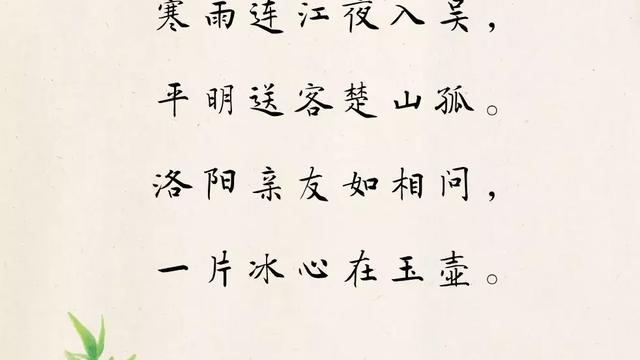 寒雨连江夜入吴，
平明送客楚山孤。
洛阳亲友如相问，
一片冰心在玉壶。